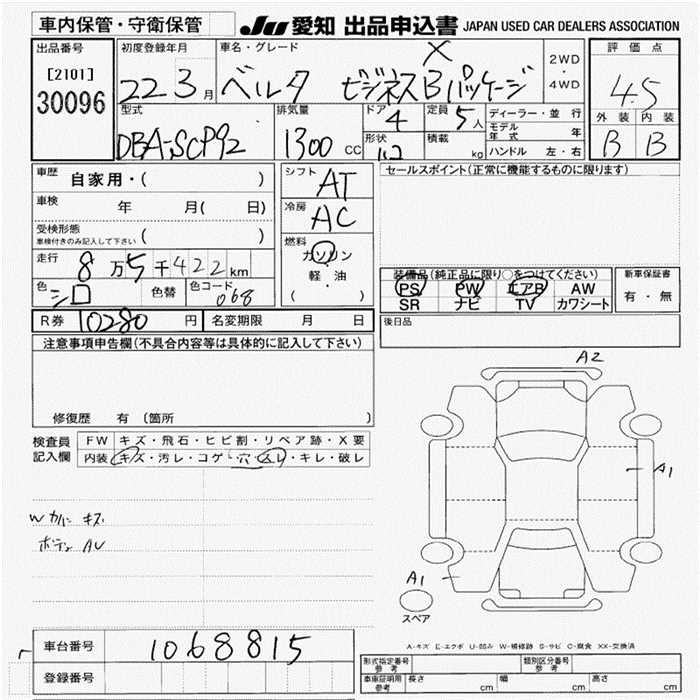 車内保管・守衛保管
JU 愛知 出品申込書 JAPAN USED CAR DEALERS ASSOCIATION
出品番号
[2101]
30096
初度登録年月
22 3月
車名・グレード
ベルタ X ビジネスBパッケージ
2WD
・
4WD
評価点
4.5
外装 内装
B B
型式
DBA-SCP92
排気量
1300 CC
ドア
4
形状
定員
5人
積載
kg
ディーラー・並行
モデル年式 年
ハンドル 左・右
車歴
自家用・( )
車検
年 月( 日)
受検形態
車検付きのみ記入して下さい ( )
走行 8万5千422km
色 シロ 色替 色コード 068
シフト
AT
冷房
AC
燃料
ガソリン
軽・油
( )
セールスポイント(正常に機能するものに限ります)
装備品(純正品に限り○をつけてください)
PS PW エアB AW
SR ナビ TV カワシート
新車保証書
有・無
R券 10280円 名変期限 月 日
後日品
注意事項申告欄(不具合内容等は具体的に記入して下さい)
修復歴 有 (箇所 )
検査員記入欄
FW キズ・飛石・ヒビ割・リペア跡・X要
内装 キズ・汚レ・コゲ・穴・スレ・キレ・破レ
Wカバー キズ
ボディ AU
A2
A1
A1
スペア
A-キズ E-エクボ U-凹み W-補修跡 S-サビ C-腐食 XX-交換済
車台番号 1068815
登録番号
形式指定番号
参考
類別区分番号
参考
車庫証明用
参考
長さ cm 幅 cm 高さ cm